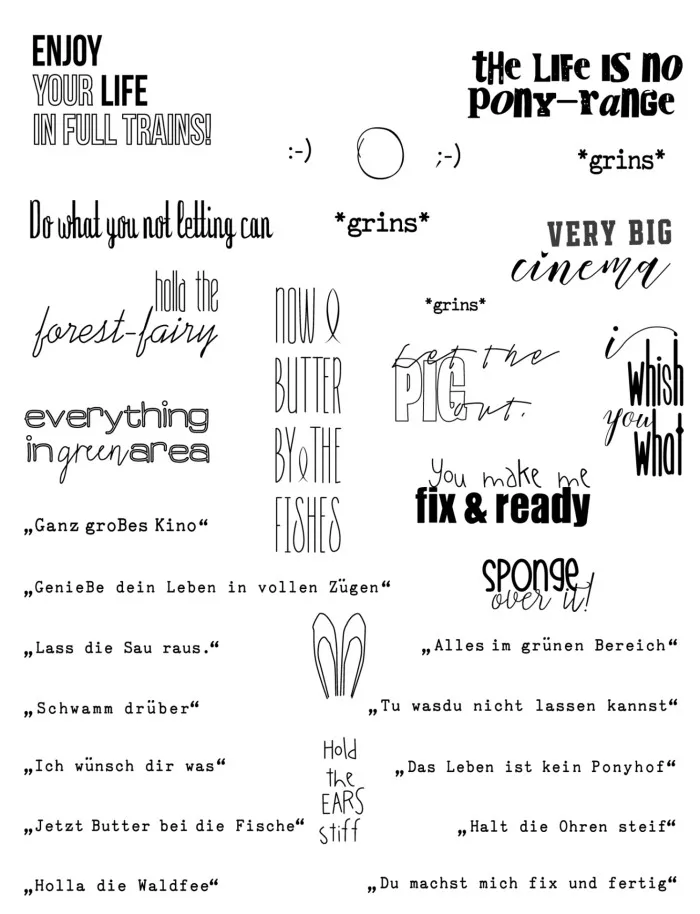 ENJOY
YOUR LIFE
IN FULL TRAINS!
the LIFe IS no
pony-range
:-)
;-)
*grins*
Do what you not letting can
*grins*
VERY BIG
cinema
holla the
forest-fairy
NOW
BUTTER
BY THE
FISHES
*grins*
Let the
PIG
out.
i
whish
you
what
everything
in green area
you make me
fix & ready
„Ganz groBes Kino“
sponge
over it!
„GenieBe dein Leben in vollen Zügen“
„Lass die Sau raus.“
„Alles im grünen Bereich“
„Schwamm drüber“
„Tu wasdu nicht lassen kannst“
Hold
the
EARS
stiff
„Ich wünsch dir was“
„Das Leben ist kein Ponyhof“
„Jetzt Butter bei die Fische“
„Halt die Ohren steif“
„Holla die Waldfee“
„Du machst mich fix und fertig“